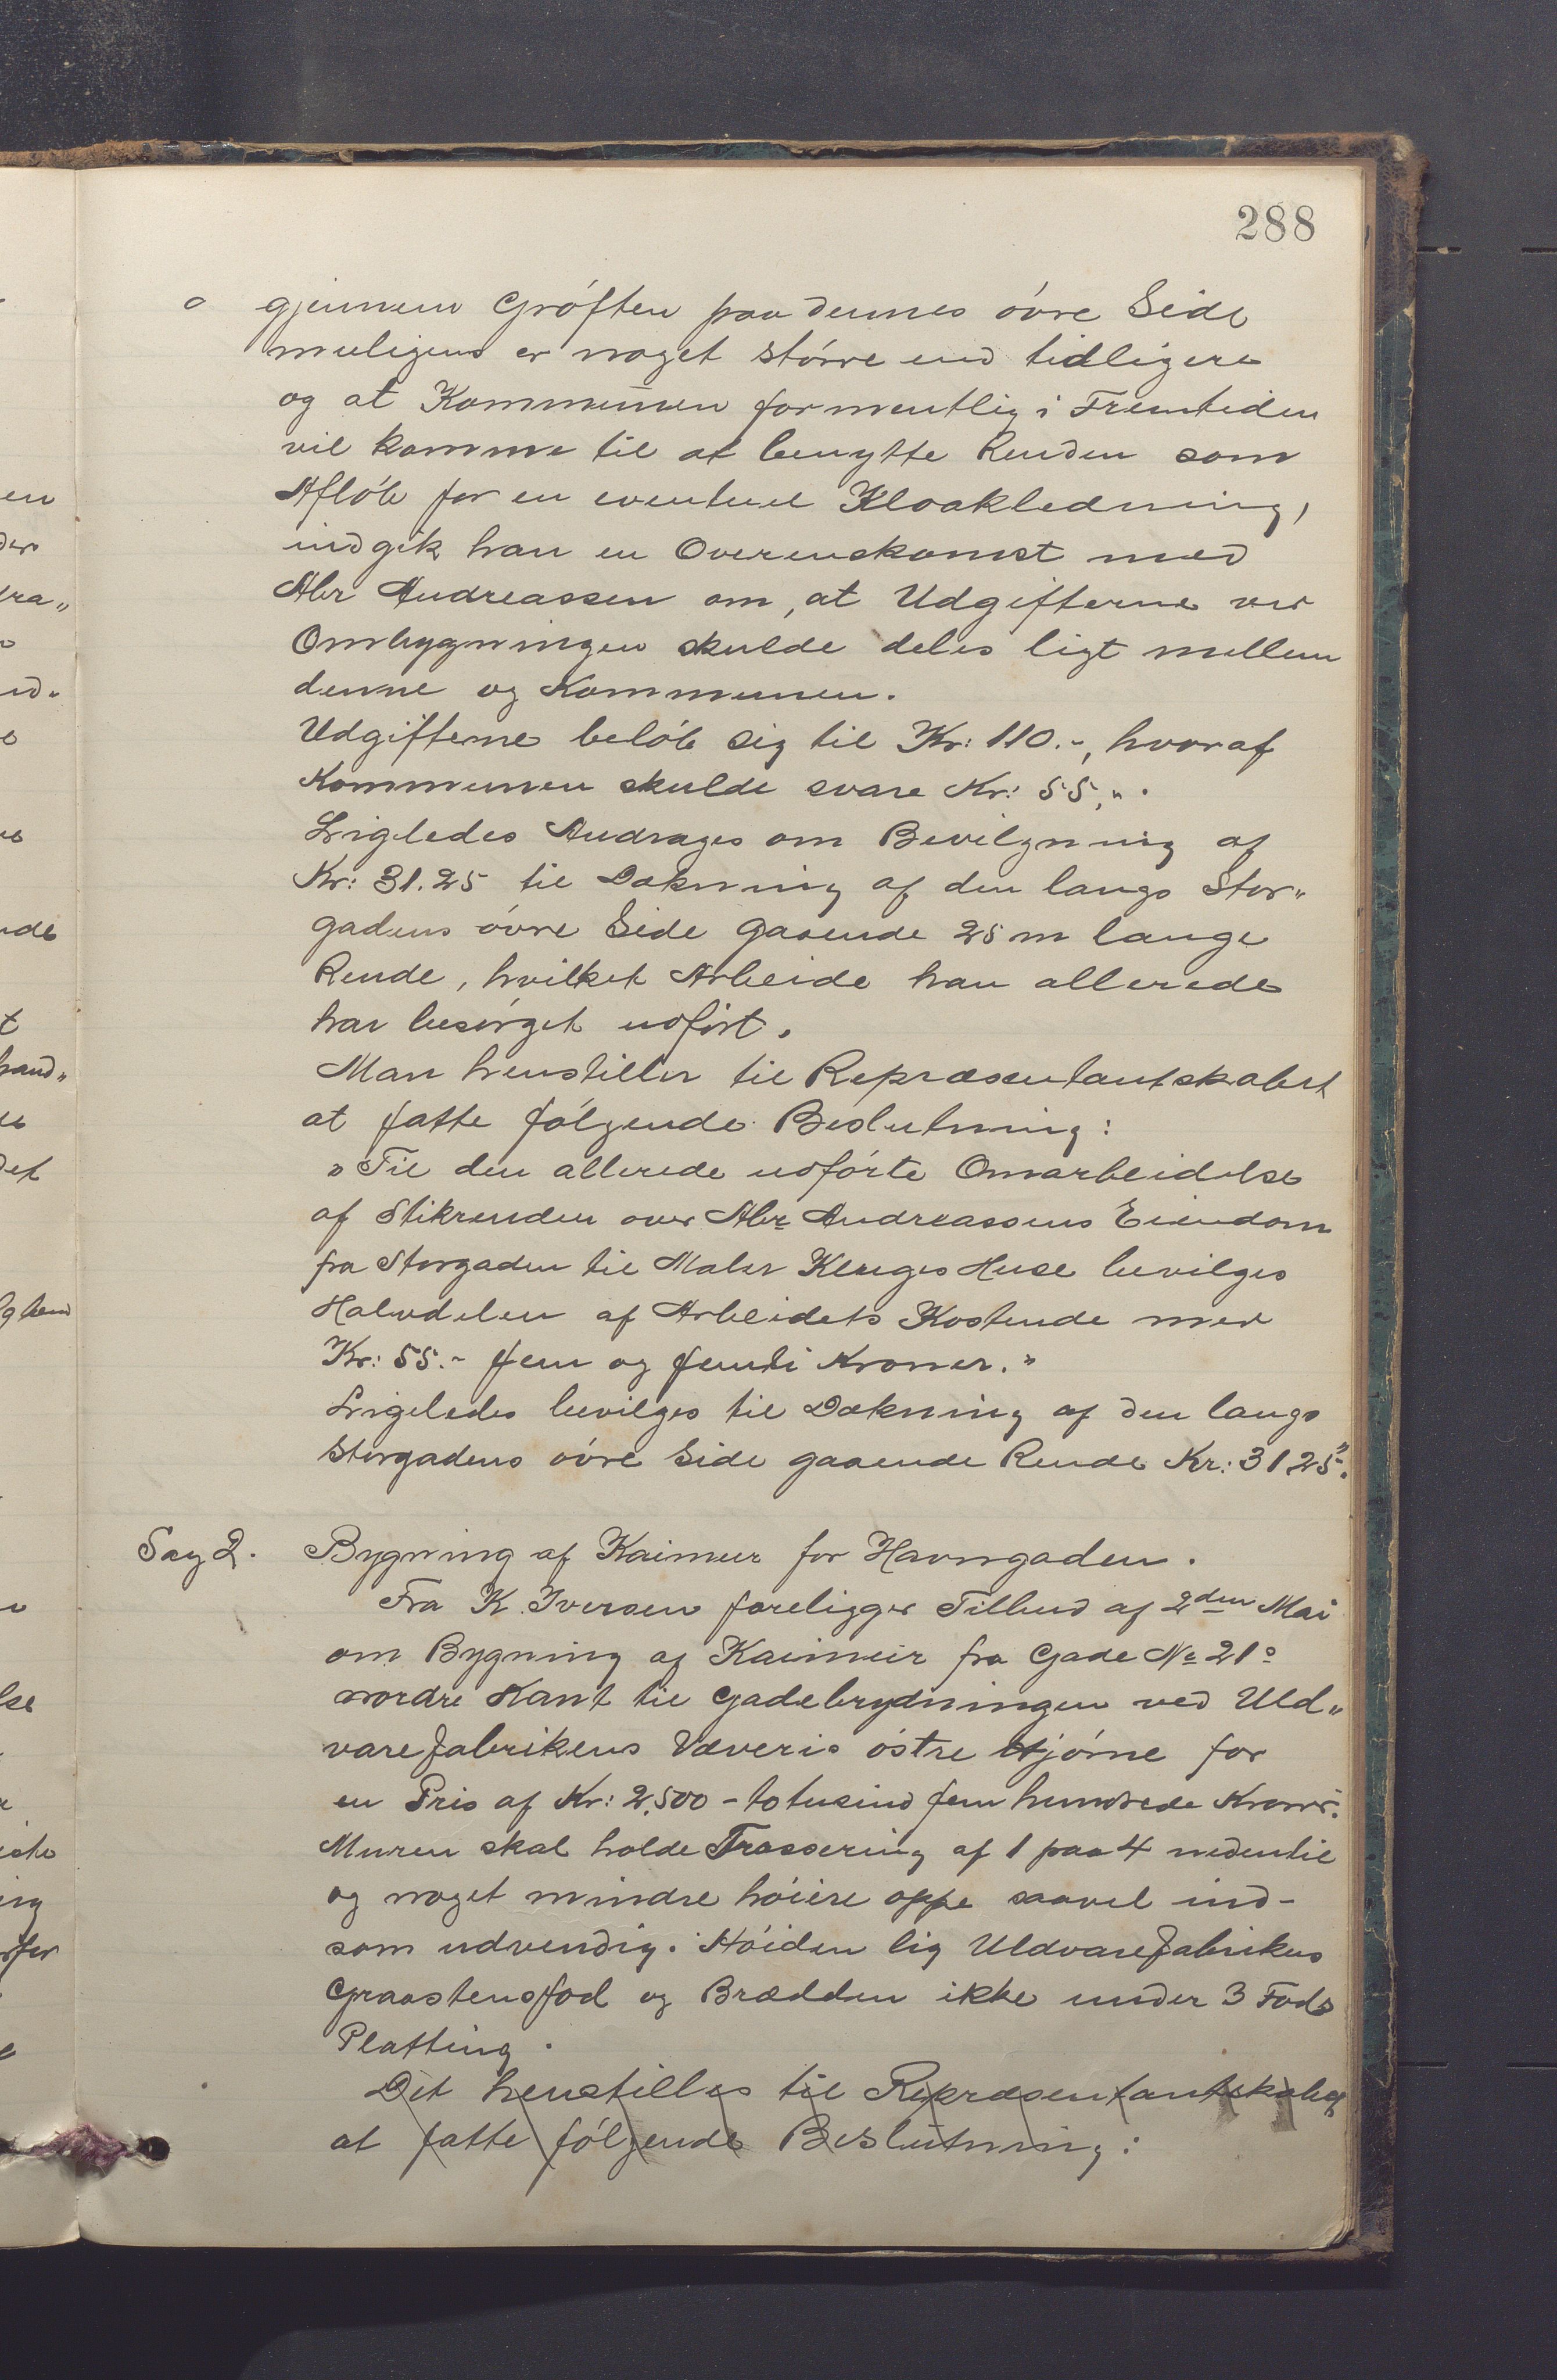 288
gjennem Grøften paa dennes øvre Side
muligens er noget større end tidligere
og at Kommunen formentlig i Fremtiden
vil komme til at benytte Renden som
Afløb for en eventuel Kloakledning,
indgik han en Overenskomst med
Abr Andreassen om, at Udgifterne ved
Ombygningen skulde deles ligt mellem
denne og Kommunen.
Udgifterne beløb sig til Kr: 110.-, hvoraf
Kommunen skulde svare Kr: 55,".
Ligeledes Andrages om Bevilgning af
Kr: 31.25 til Dækning af den langs Stor„
gadens øvre Side gaaende 25 m lange
Rende, hvilket Arbeide han allerede
har besørget udført.
Man henstiller til Repræsentantskabet
at fatte følgende Beslutning:
"Til den allerede udførte Omarbeidelse
af Stikrenden over Abr Andreassens Eiendom
fra Storgaden til Maler Kluges Huse bevilges
Halvdelen af Arbeidets Kostende med
Kr: 55.- fem og femti Kroner."
Ligeledes bevilges til Dækning af den langs
Storgadens øvre Side gaaende Rende Kr: 31 25".
Sag 2. Bygning af Kaimur for Havngaden.
Fra K. Iversen foreligger Tilbud af 2den Mai
om Bygning af Kaimur fra Gade No 21s
nordre Kant til Gadebrydningen ved Uld„
varefabrikens Væveris østre Hjørne for
en Pris af Kr: 2,500 - totusind fem hundrede Kroner.
Muren skal holde Trassering af 1 paa 4 nedentil
og noget mindre høiere oppe saavel ind-
som udvendig. Høiden lig Uldvarefabrikens
Graastensfod og Brædden ikke under 3 Fods
Platting.
Det henstilles til Repræsentantskabet
at fatte følgende Beslutning: